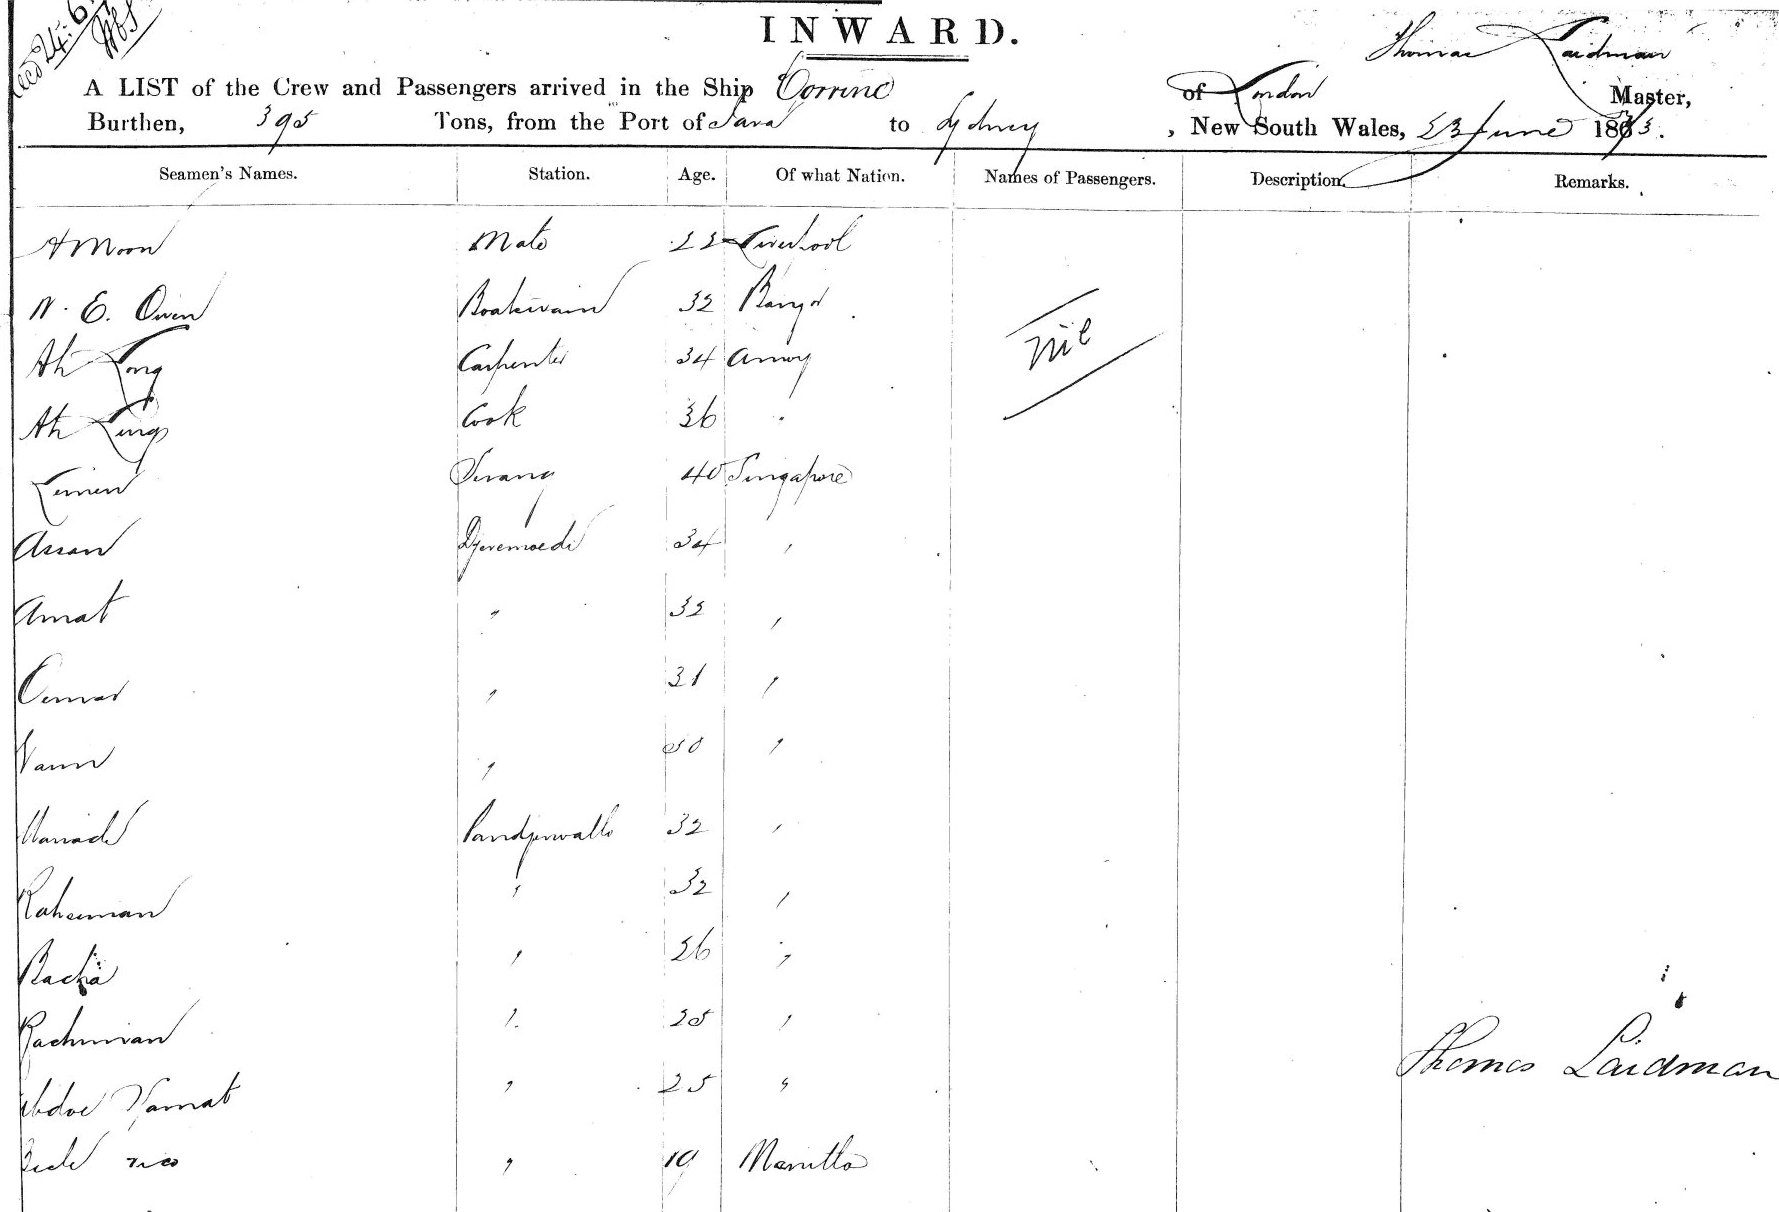 24.6
INWARD.
Thomas Laidman
A LIST of the Crew and Passengers arrived in the Ship Corrine of London Master,
Burthen, 395 Tons, from the Port of Java to Sydney, New South Wales, 23 June 1873.
Seamen's Names. Station. Age. Of what Nation. Names of Passengers. Description. Remarks.
A Moon Mate 22 Liverpool
W. E. Owen Boatswain 32 Bangor
Nil
Ah Long Carpenter 34 Amoy
Ah Lung Cook 36 "
Serang 40 Singapore
Assan Djoeremoedi 34 "
Amat " 32 "
Oemar " 31 "
" 30 "
32 "
" 32 "
" 26 "
Rachmian " 25 "
Thomas Laidman
" 25 "
" 19 Manilla